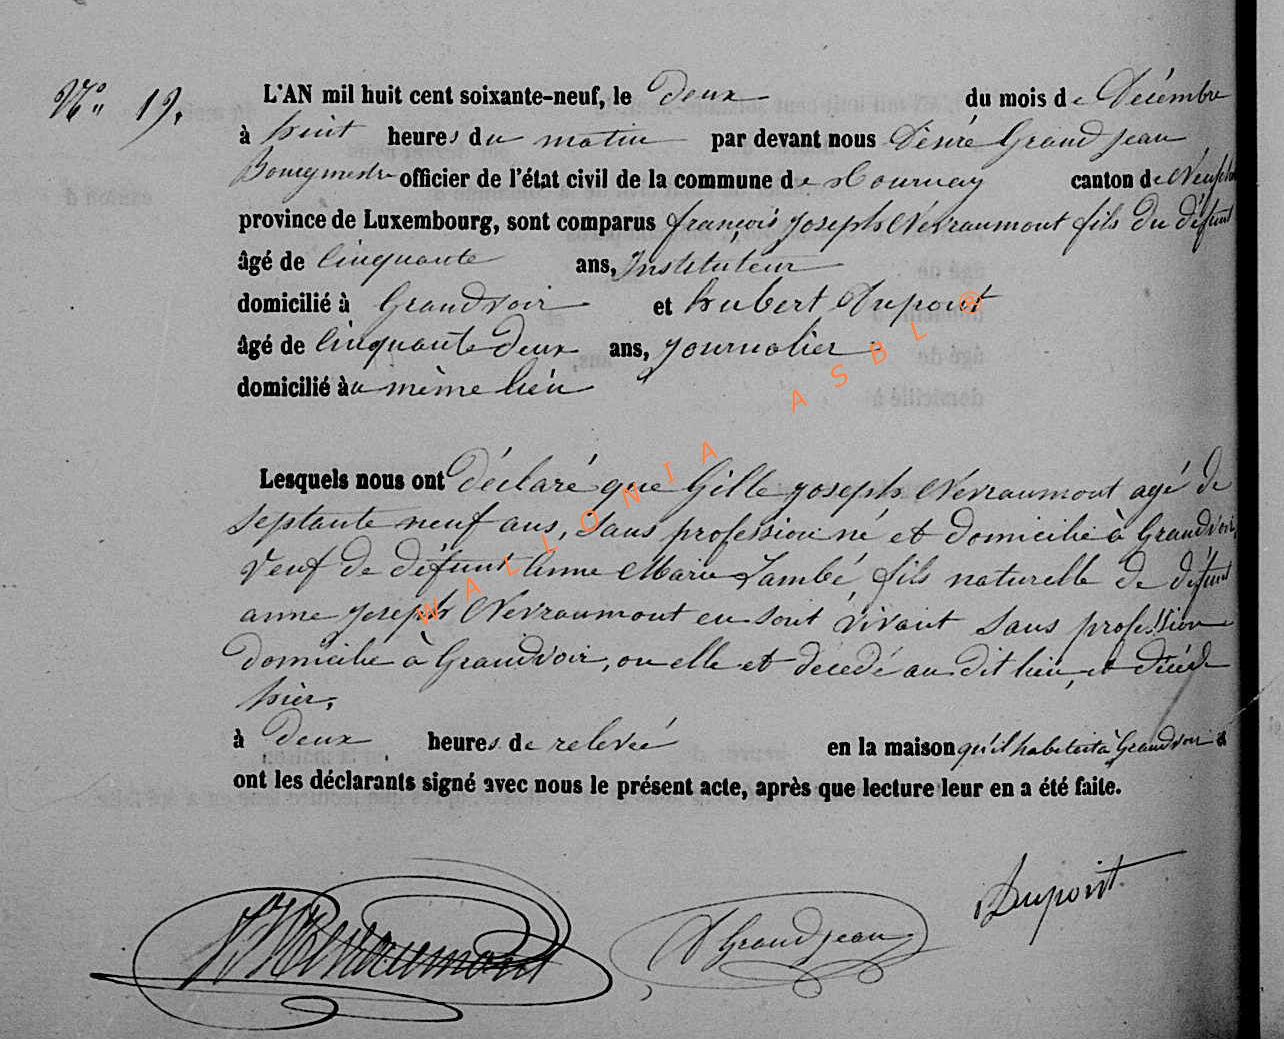 N° 19.
L'AN mil huit cent soixante-neuf, le Deux du mois de Décembre
à huit heures du matin par devant nous Désiré Grandjean
Bourgmestre officier de l'état civil de la commune de Tournay canton de Neufchâ
province de Luxembourg, sont comparus françois joseph Nevraumont fils du défunt
âgé de Cinquante ans, Instituteur
domicilié à Grandvoir et hubert Dupont
âgé de Cinquante Deux ans, journalier
domicilié àu même lieu
Lesquels nous ont Déclaré que Gille joseph Nevraumont agé de
septante neuf ans, sans profession né et domicilié à Grandvoir,
veuf de défunt Anne Marie Lambé, fils naturelle de défunt
anne joseph Nevraumont en sont vivant sans profession
domicilie à Grandvoir, ou elle et décédé au dit lieu, et décédé
hier,
à Deux heures de relevée en la maison qu'il habitait à Grandvoir &
ont les déclarants signé avec nous le présent acte, après que lecture leur en a été faite.
Nevraumont
D Grandjean
Dupont
WALLONIA ASBL ®